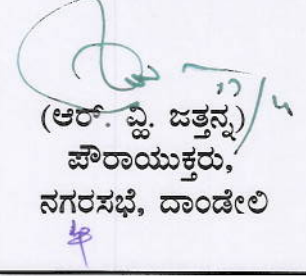 (ಆರ್. ವ್ಹಿ. ಜತ್ತನ್ನ)
ಪೌರಾಯುಕ್ತರು,
ನಗರಸಭೆ, ದಾಂಡೇಲಿ